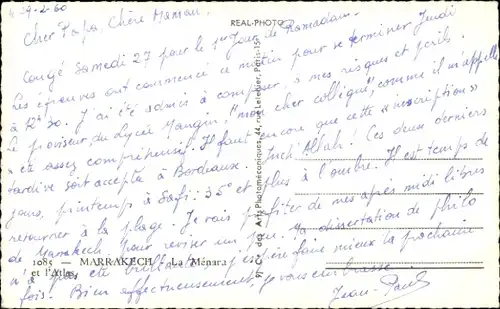 29-2-60
Cher Papa, Chère Maman,
Congé Samedi 27 pour le 1er Jour de Ramadam.
Les épreuves ont commencé ce matin pour se terminer Jeudi
à 12h30. J'ai été admis à composer "à mes risques et périls".
Le proviseur du Lycée Mangin, "mon cher collègue", comme il m'appelle
est assez compréhensif. Il faut encore que cette "inscription"
tardive soit acceptée à Bordeaux. Inch'Allah! Ces deux derniers
jours, printemps à Safi: 35° et plus à l'ombre. Il est temps de
retourner à la plage. Je vais profiter de mes après midi libres
de Marrakech pour réviser un peu. Ma dissertation de philo
n'a pas été brillante. J'espère faire mieux la prochaine
fois. Bien affectueusement, je vous embrasse.
Jean-Paul
REAL-PHOTO
Cie des Arts Photomécaniques, 44, rue Letellier, Paris-15e
1085 — MARRAKECH — La Ménara
et l'Atlas